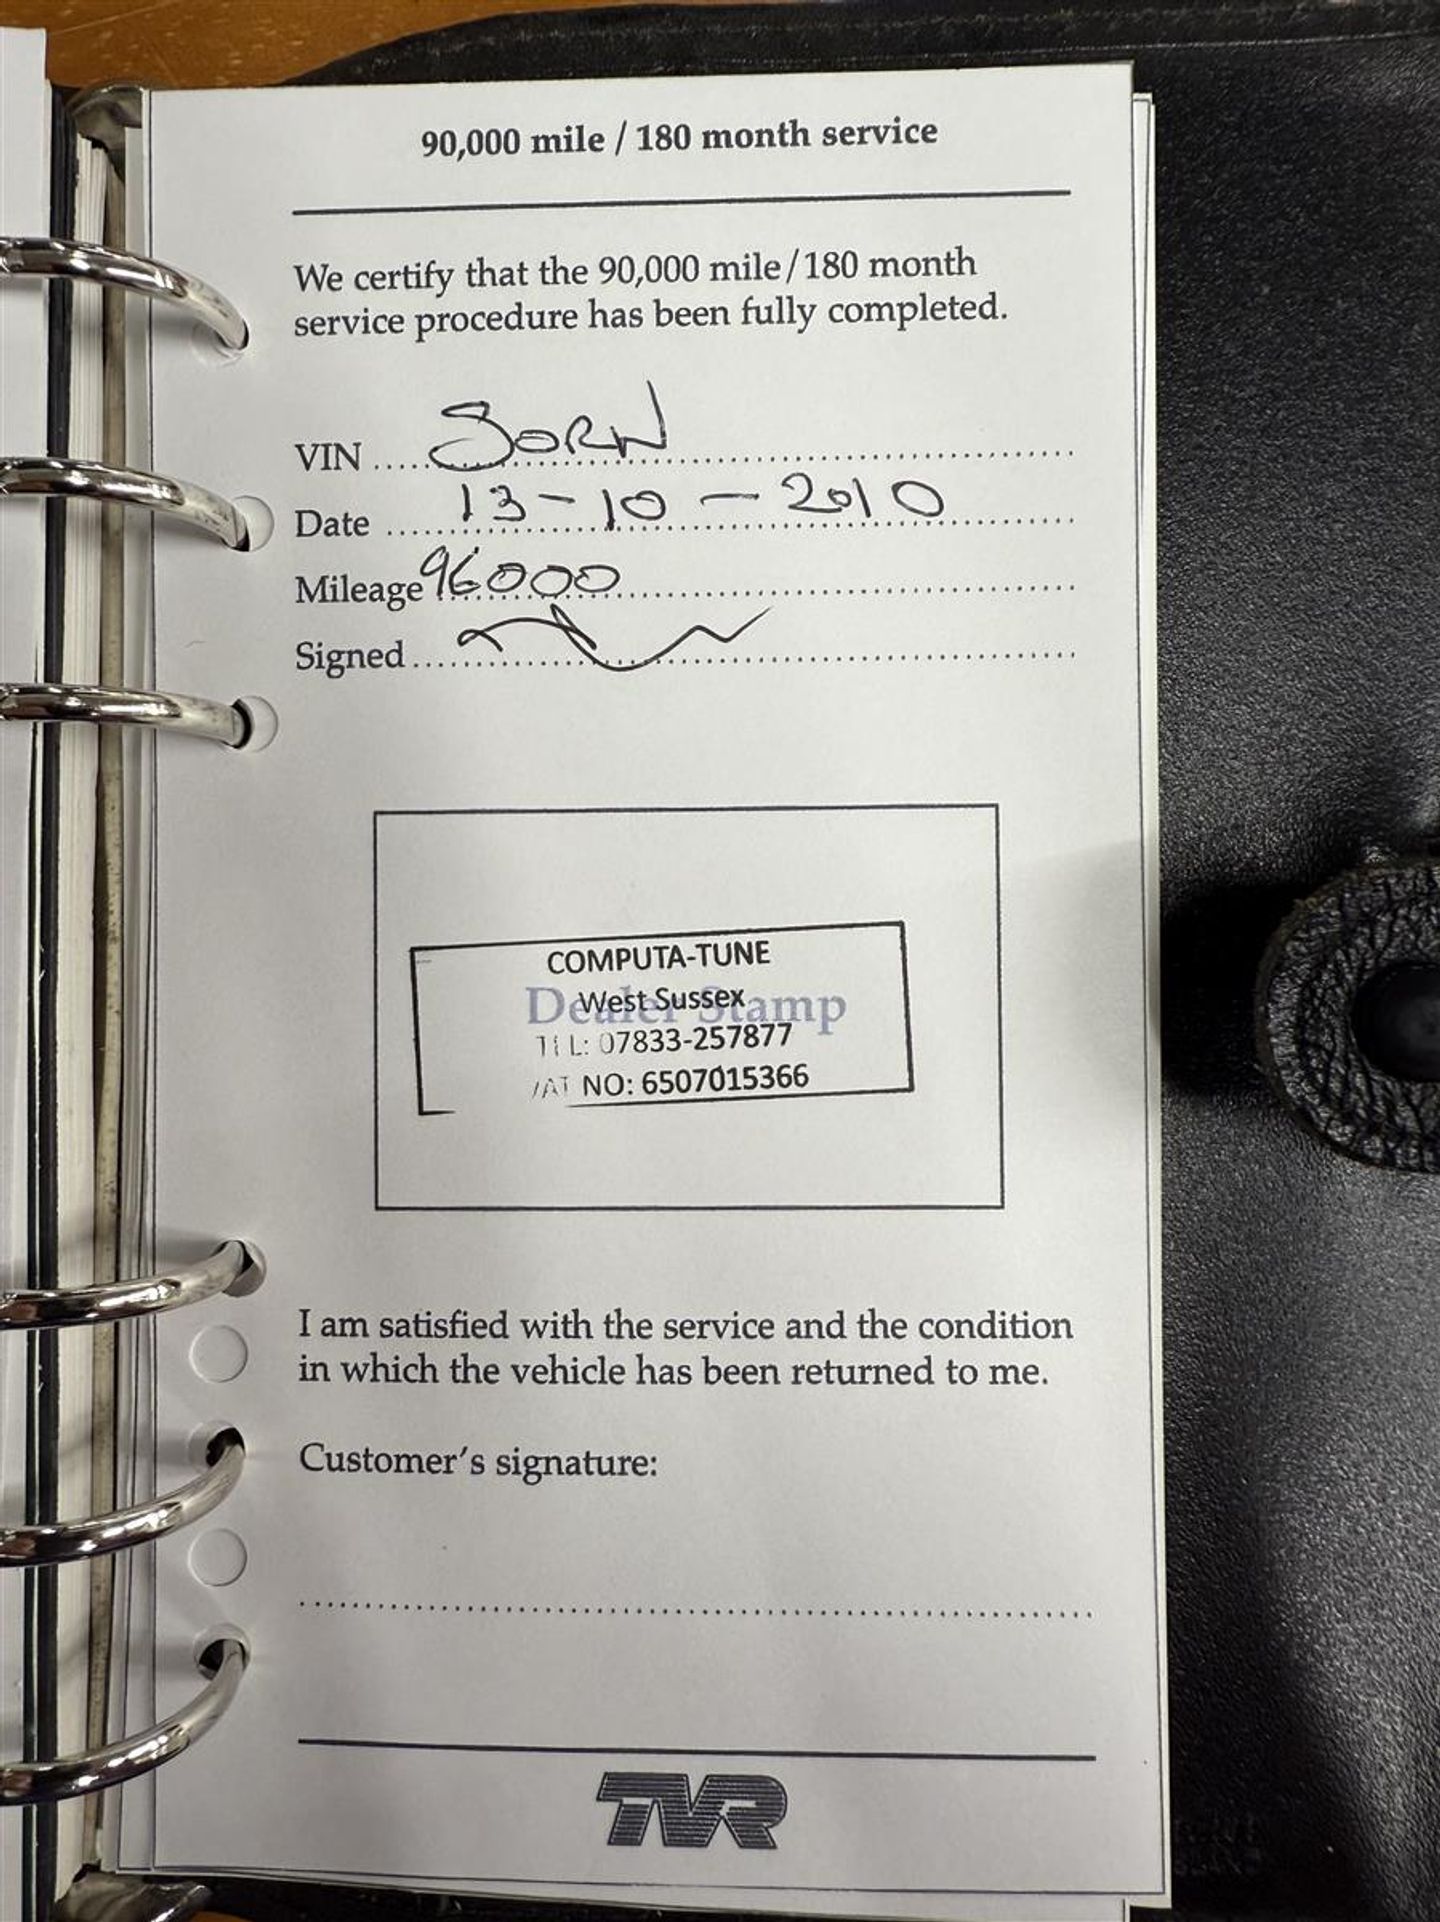 90,000 mile / 180 month service
We certify that the 90,000 mile/180 month
service procedure has been fully completed.
VIN SORN
Date 13-10-2010
Mileage 96000
Signed
Dealer Stamp
COMPUTA-TUNE
West Sussex
TEL: 07833-257877
VAT NO: 6507015366
I am satisfied with the service and the condition
in which the vehicle has been returned to me.
Customer's signature:
TVR